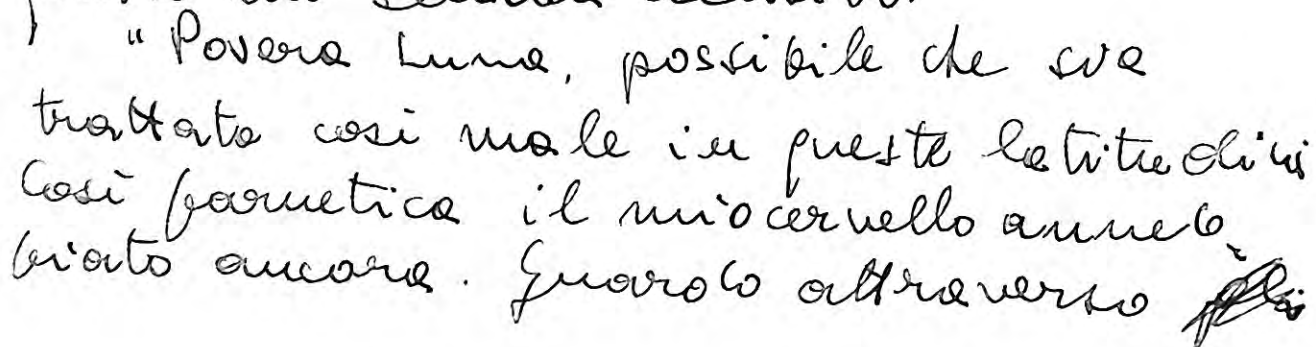 "Povera Luna, possibile che sia
trattata così male in queste latitudini
Così farnetica il mio cervello anneb
biato ancora. Guardo attraverso